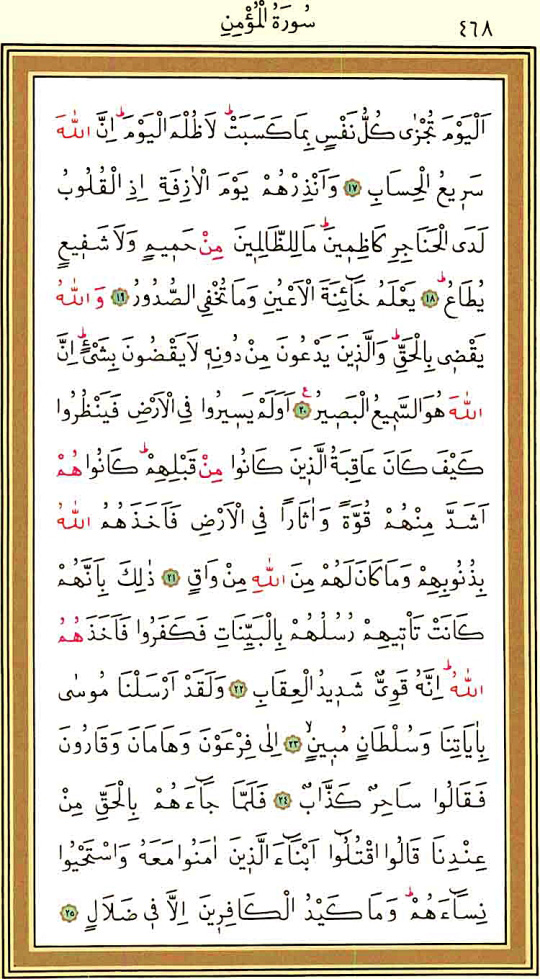 سُورَةُ الْمُؤْمِنِ ٤٦٨
اَلْيَوْمَ تُجْزٰى كُلُّ نَفْسٍ بِمَا كَسَبَتْۜ لَا ظُلْمَ الْيَوْمَۜ اِنَّ اللّٰهَ
سَر۪يعُ الْحِسَابِ ﴿١٧﴾ وَاَنْذِرْهُمْ يَوْمَ الْاٰزِفَةِ اِذِ الْقُلُوبُ
لَدَى الْحَنَاجِرِ كَاظِم۪ينَۜ مَا لِلظَّالِم۪ينَ مِنْ حَم۪يمٍ وَلَا شَف۪يعٍ
يُطَاعُۜ ﴿١٨﴾ يَعْلَمُ خَٓائِنَةَ الْاَعْيُنِ وَمَا تُخْفِي الصُّدُورُ ﴿١٩﴾ وَاللّٰهُ
يَقْض۪ي بِالْحَقِّۜ وَالَّذ۪ينَ يَدْعُونَ مِنْ دُونِه۪ لَا يَقْضُونَ بِشَيْءٍۜ اِنَّ
اللّٰهَ هُوَ السَّم۪يعُ الْبَص۪يرُ۟ ﴿٢٠﴾ اَوَلَمْ يَس۪يرُوا فِي الْاَرْضِ فَيَنْظُرُوا
كَيْفَ كَانَ عَاقِبَةُ الَّذ۪ينَ كَانُوا مِنْ قَبْلِهِمْۜ كَانُوا هُمْ
اَشَدَّ مِنْهُمْ قُوَّةً وَاٰثَاراً فِي الْاَرْضِ فَاَخَذَهُمُ اللّٰهُ
بِذُنُوبِهِمْ وَمَا كَانَ لَهُمْ مِنَ اللّٰهِ مِنْ وَاقٍ ﴿٢١﴾ ذٰلِكَ بِاَنَّهُمْ
كَانَتْ تَأْت۪يهِمْ رُسُلُهُمْ بِالْبَيِّنَاتِ فَكَفَرُوا فَاَخَذَهُمُ
اللّٰهُۜ اِنَّهُ قَوِيٌّ شَد۪يدُ الْعِقَابِ ﴿٢٢﴾ وَلَقَدْ اَرْسَلْنَا مُوسٰى
بِاٰيَاتِنَا وَسُلْطَانٍ مُب۪ينٍۙ ﴿٢٣﴾ اِلٰى فِرْعَوْنَ وَهَامَانَ وَقَارُونَ
فَقَالُوا سَاحِرٌ كَذَّابٌ ﴿٢٤﴾ فَلَمَّا جَٓاءَهُمْ بِالْحَقِّ مِنْ
عِنْدِنَا قَالُوا اقْتُلُٓوا اَبْنَٓاءَ الَّذ۪ينَ اٰمَنُوا مَعَهُ وَاسْتَحْيُوا
نِسَٓاءَهُمْۜ وَمَا كَيْدُ الْكَافِر۪ينَ اِلَّا ف۪ي ضَلَالٍ ﴿٢٥﴾